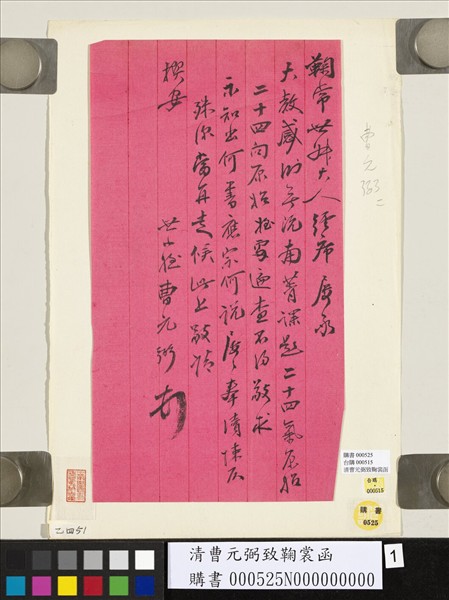 鞠常世叔大人經席屢承
大教感泐無況南菁課題二十四氣原始
二十四向原始姪處遍查不得敬求
示知出何書應宗何說屢奉清悚仄
殊深當再走候此上敬請
撰安
世小姪曹元弼
曹元弼 二
購書 000525
台購 000515
清曹元弼致鞠裳函
台購
000515
購書
0525
乙四51
清曹元弼致鞠裳函
購書 000525N000000000
1